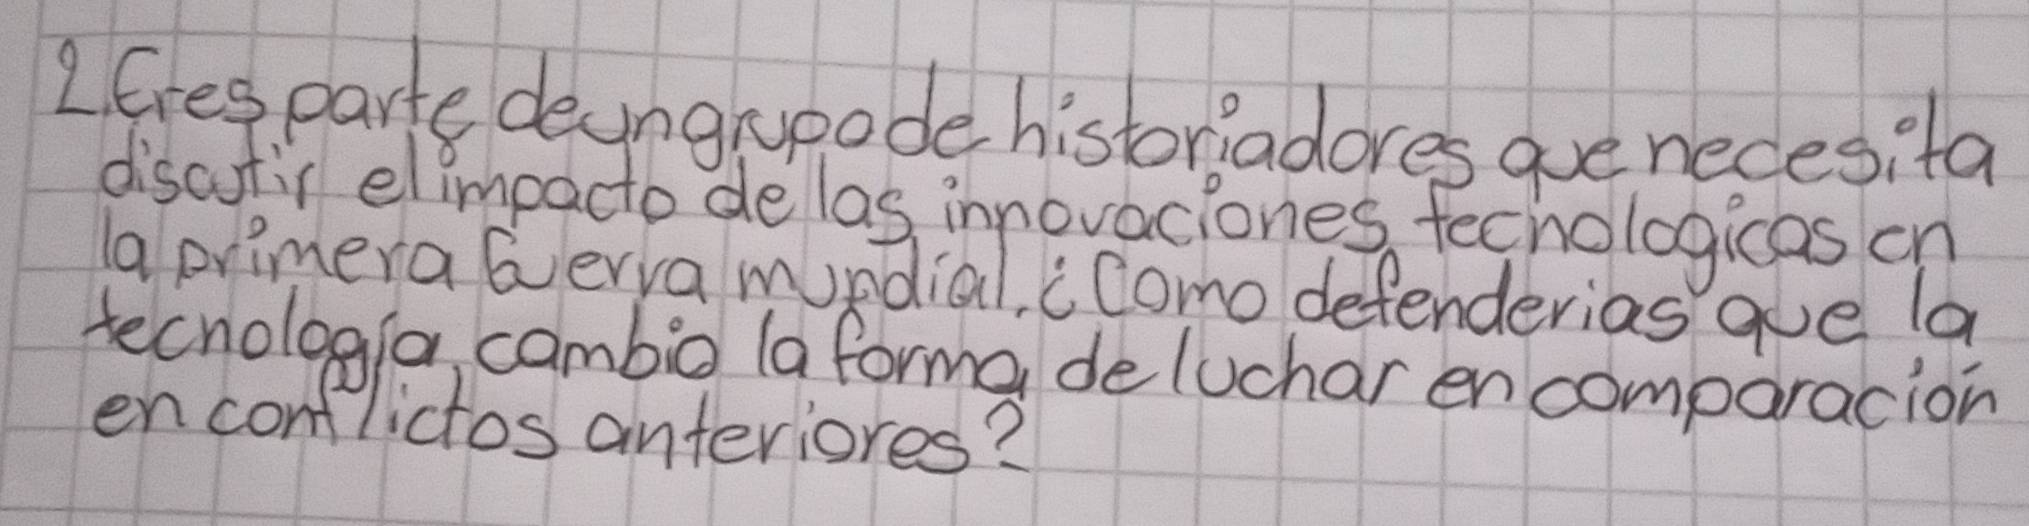 2. Eres parte de un grupo de historiadores que necesita
discutir el impacto de las innovaciones tecnologicas en
la primera Guerra mundial. ¿Como defenderias que la
tecnologia cambio la forma de luchar en comparación
en conflictos anteriores?